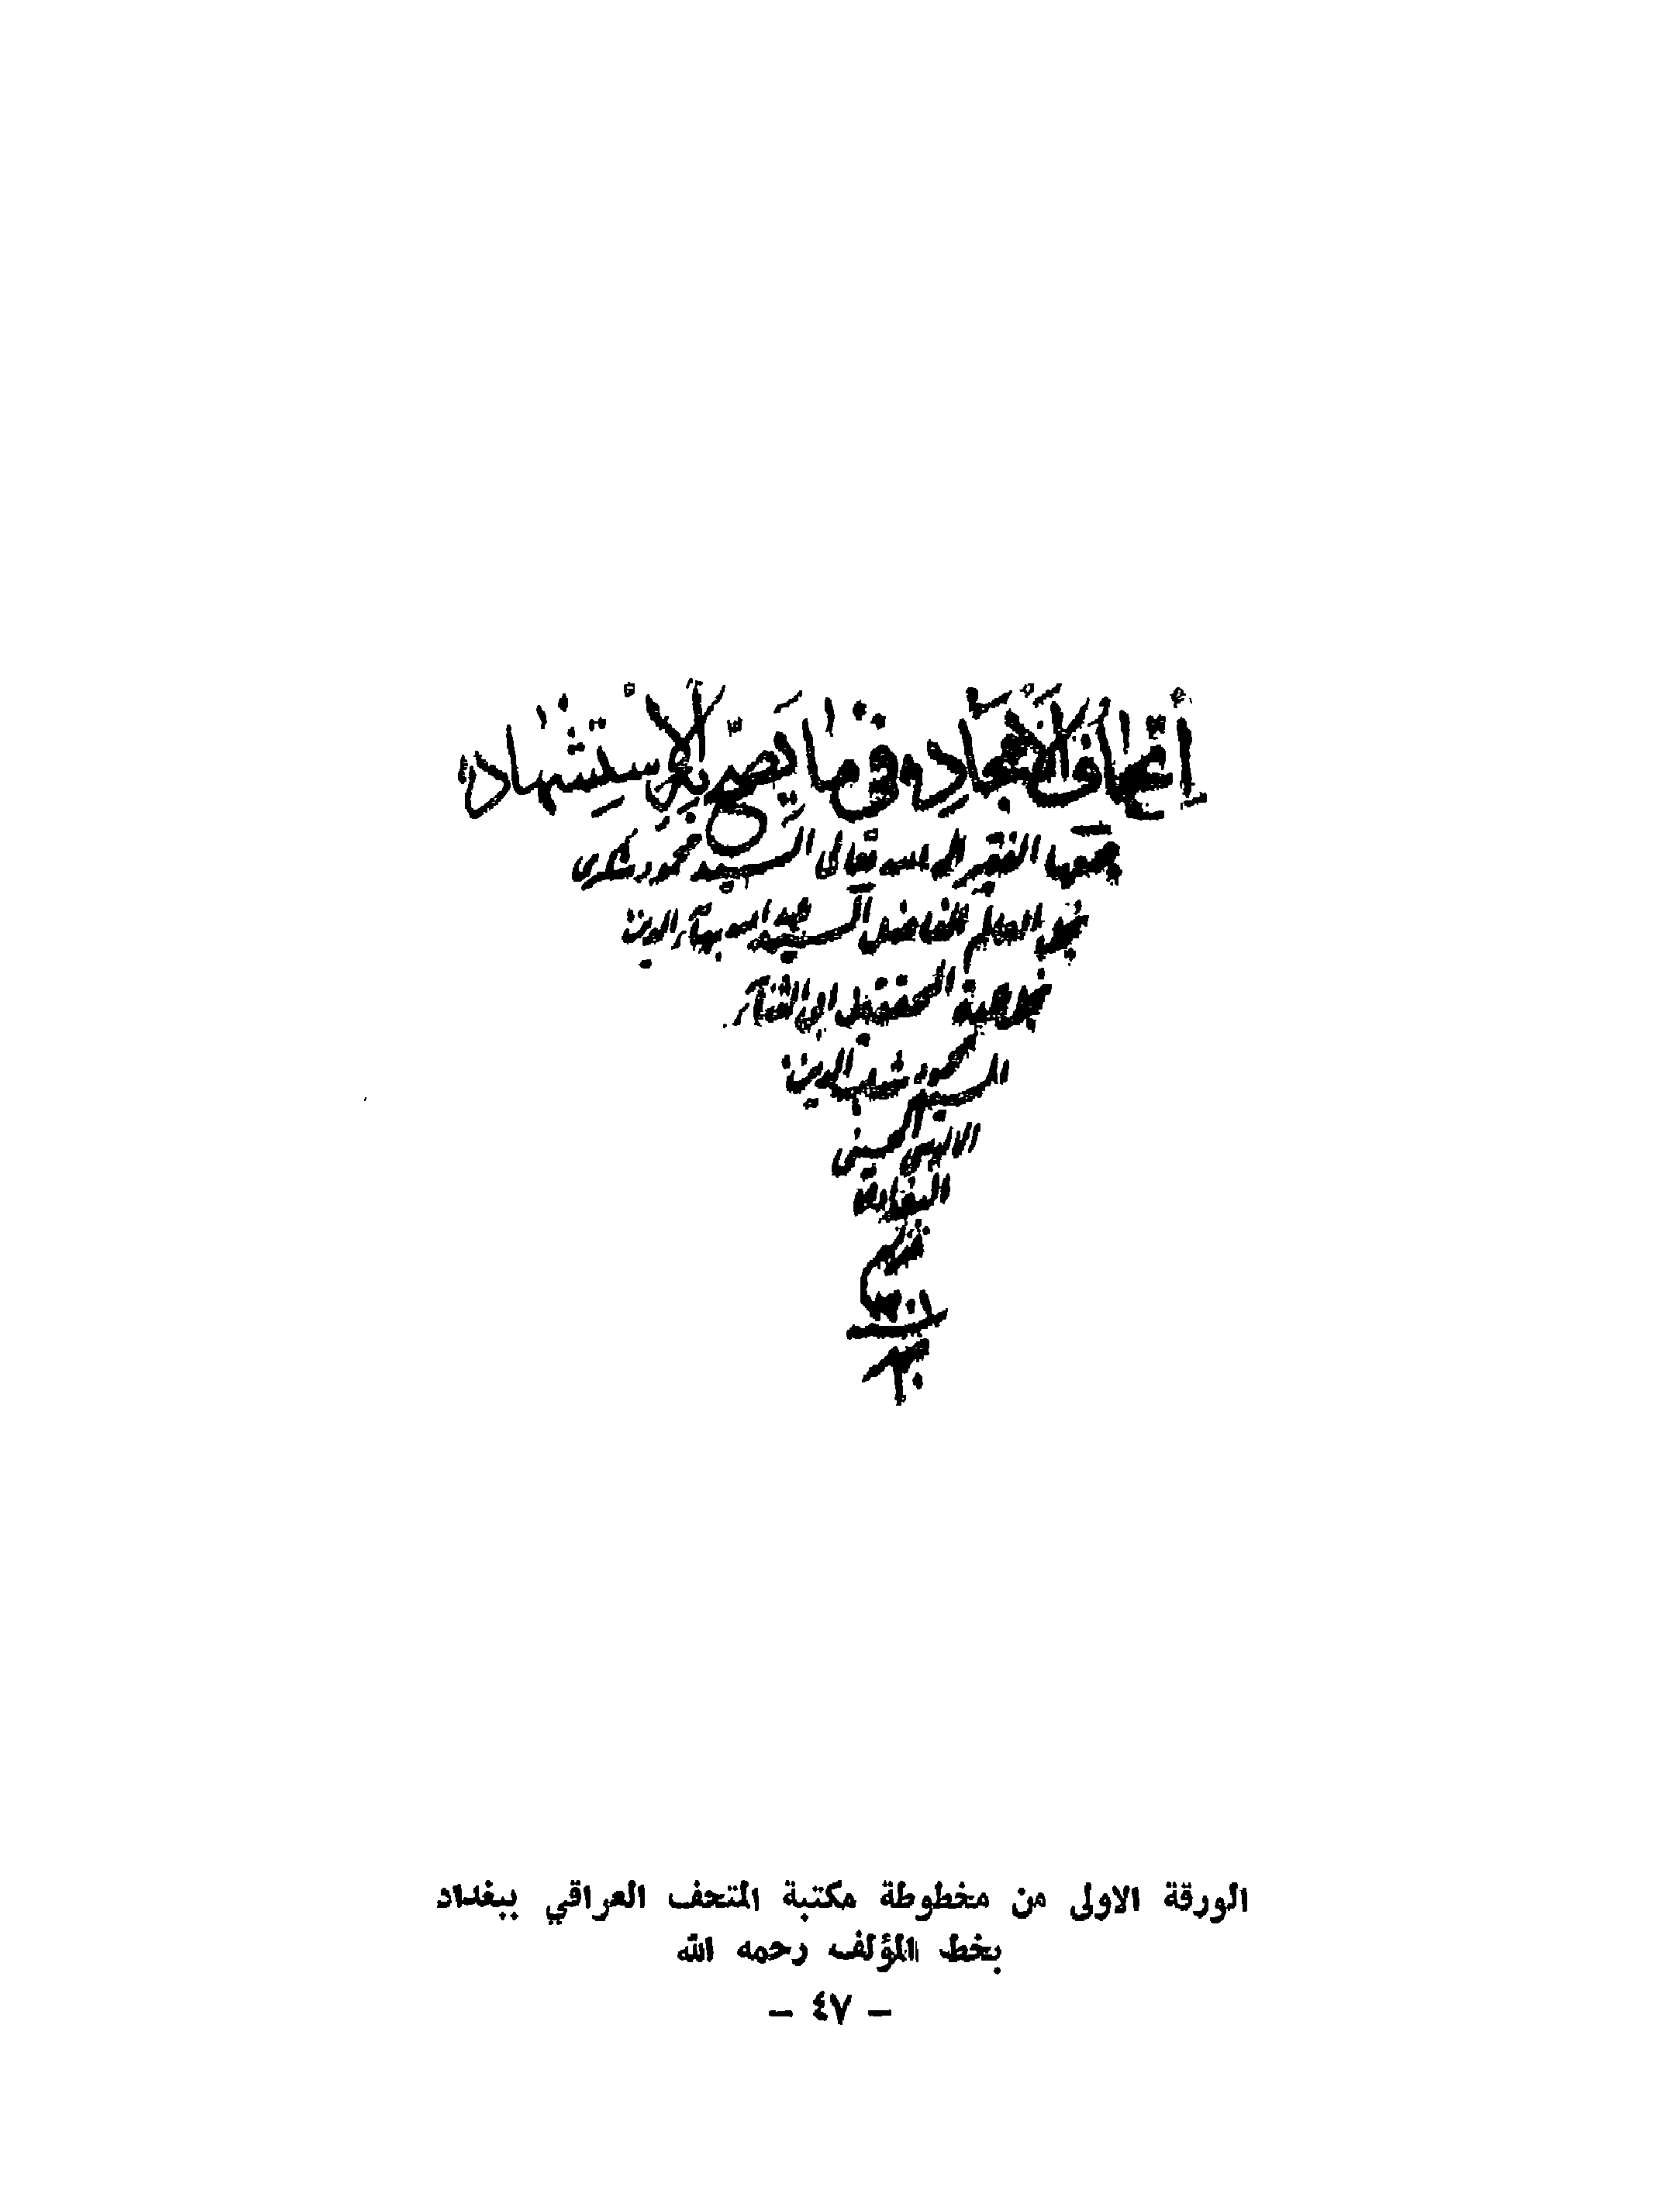 إتحاف الأمجاد في ما يصح به الاستشهاد
جمعها الفقير اليه تعالى السيد محمود شكري
نجل العالم الفاضل السيد عبد الله بهاء الدين
نجل المنتقل الى
السيد محمود شهاب الدين
الالوسي الحسيني
البغدادي
الورقة الاولى من مخطوطة مكتبة المتحف العراقي ببغداد
بخط المؤلف رحمه الله
– ٤٧ –